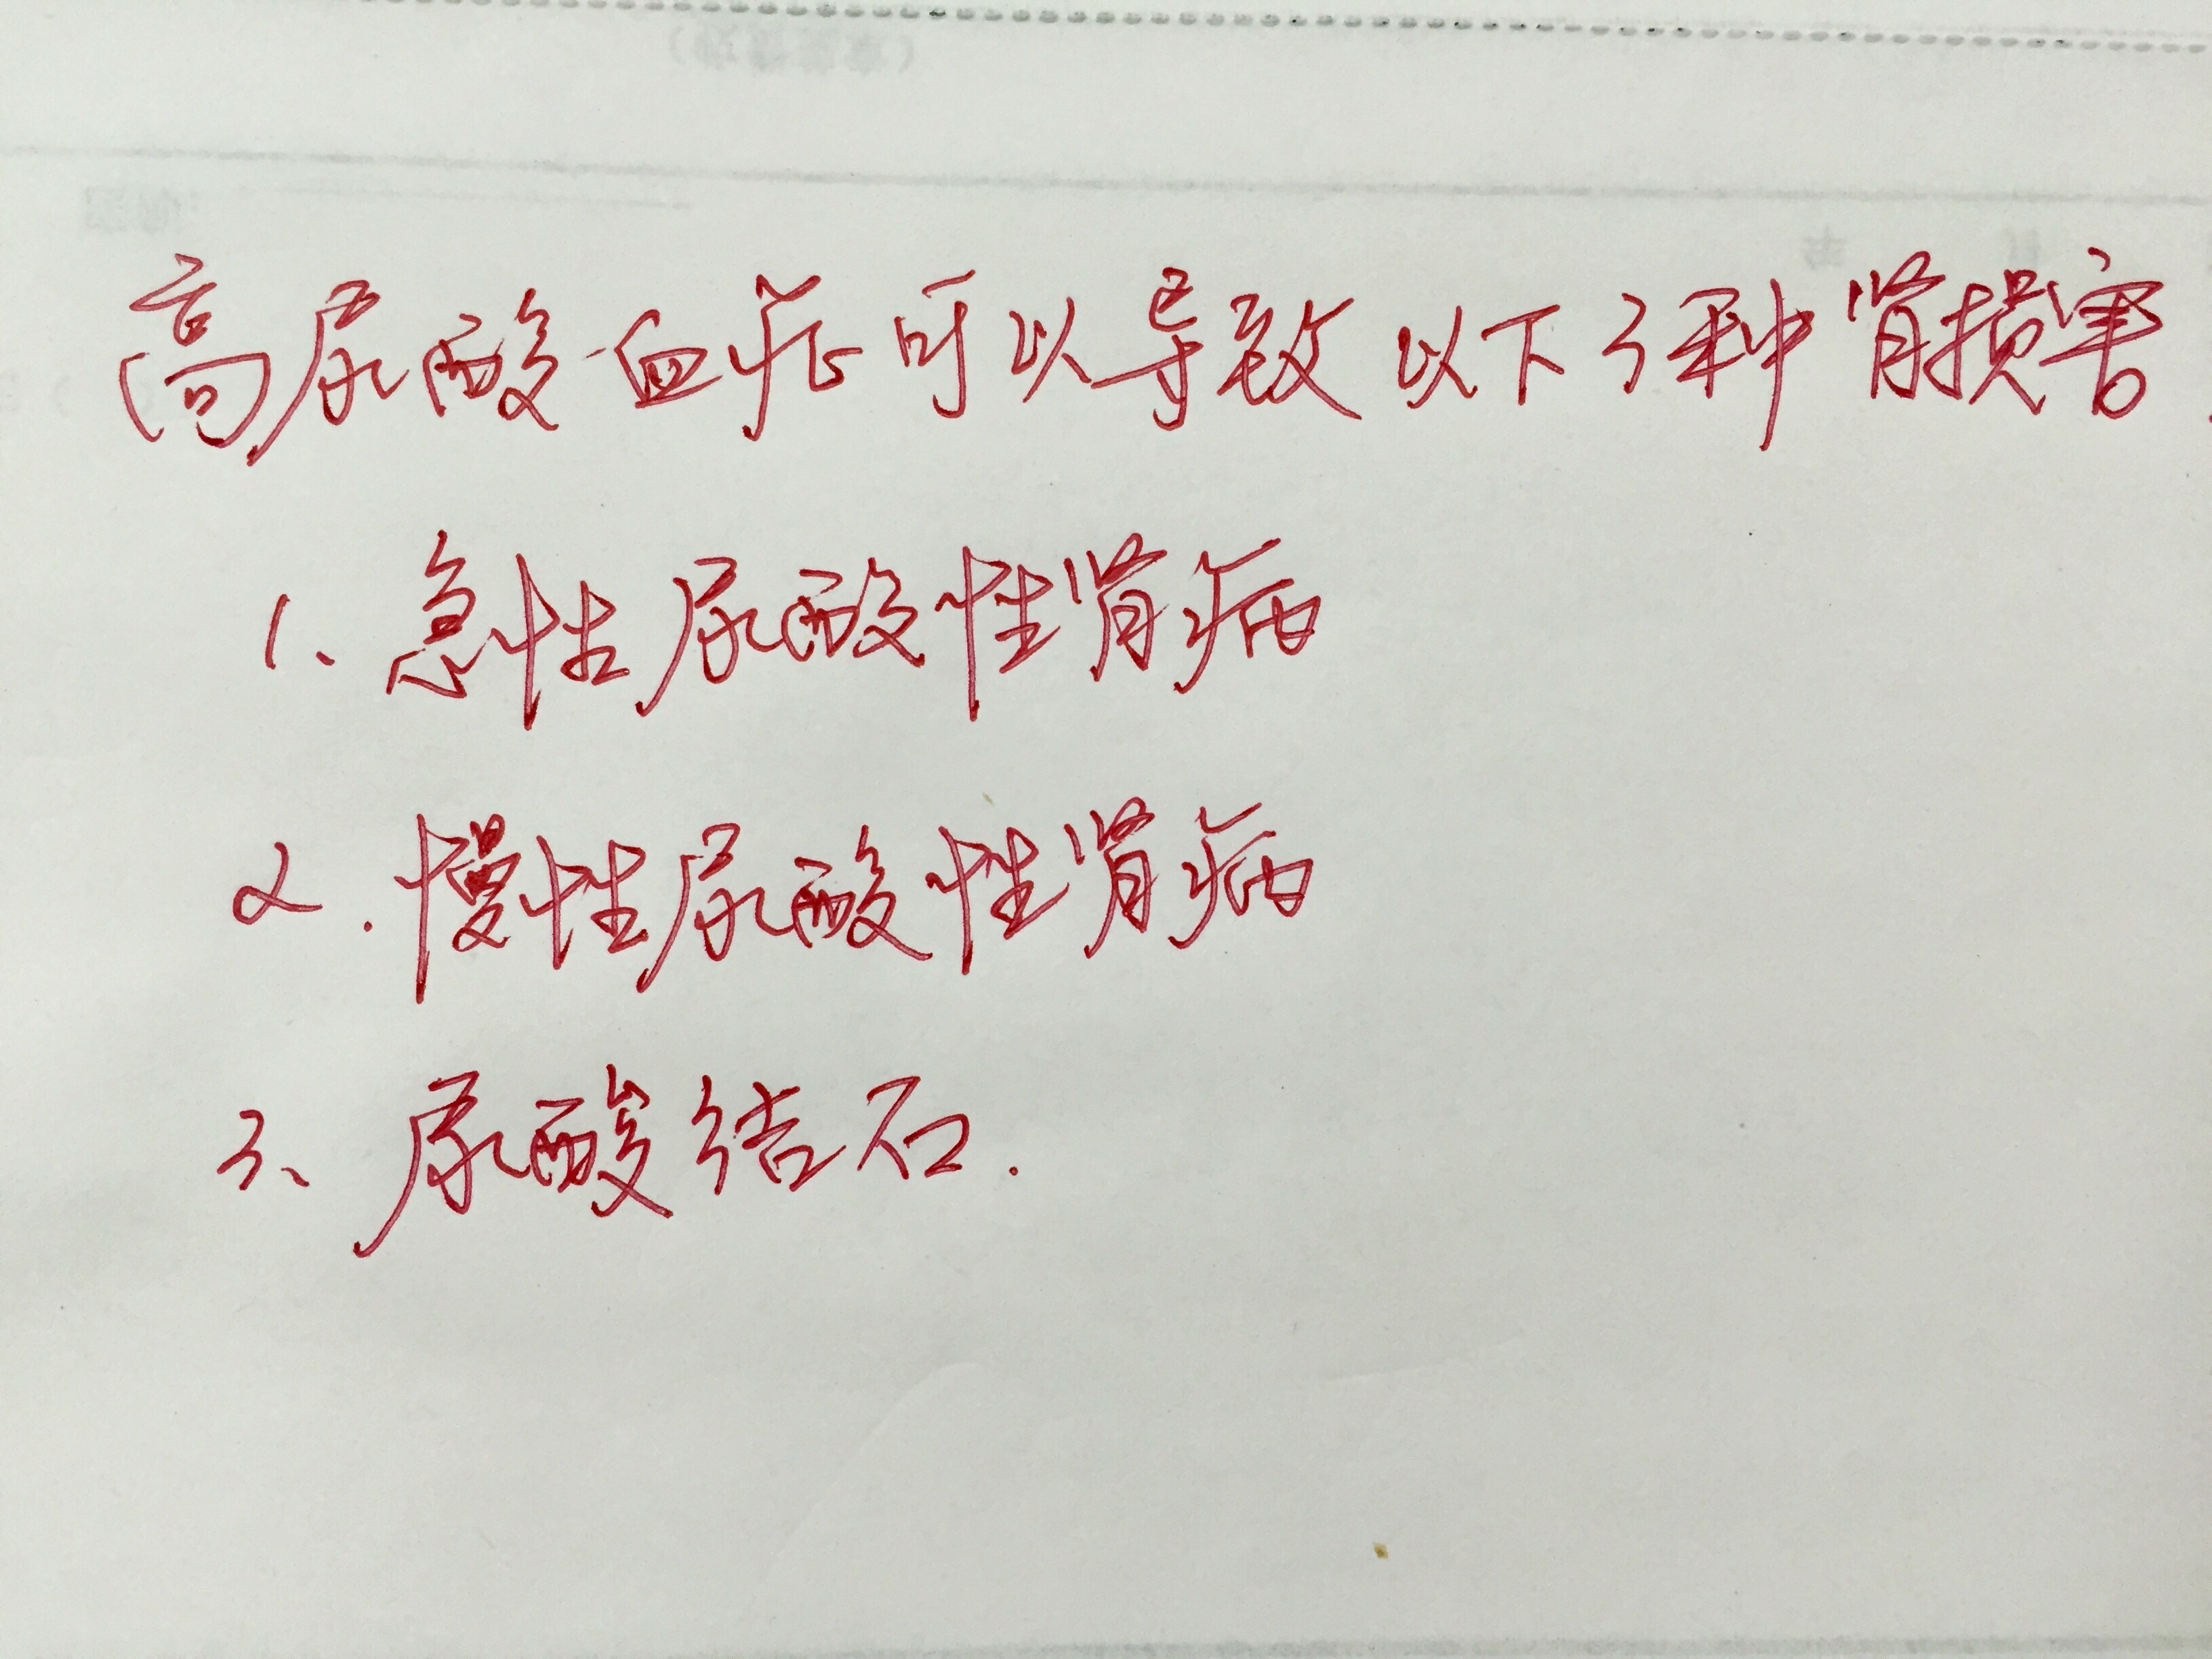 高尿酸血症可以导致以下3种肾损害.
1、急性尿酸性肾病
2.慢性尿酸性肾病
3、尿酸结石.